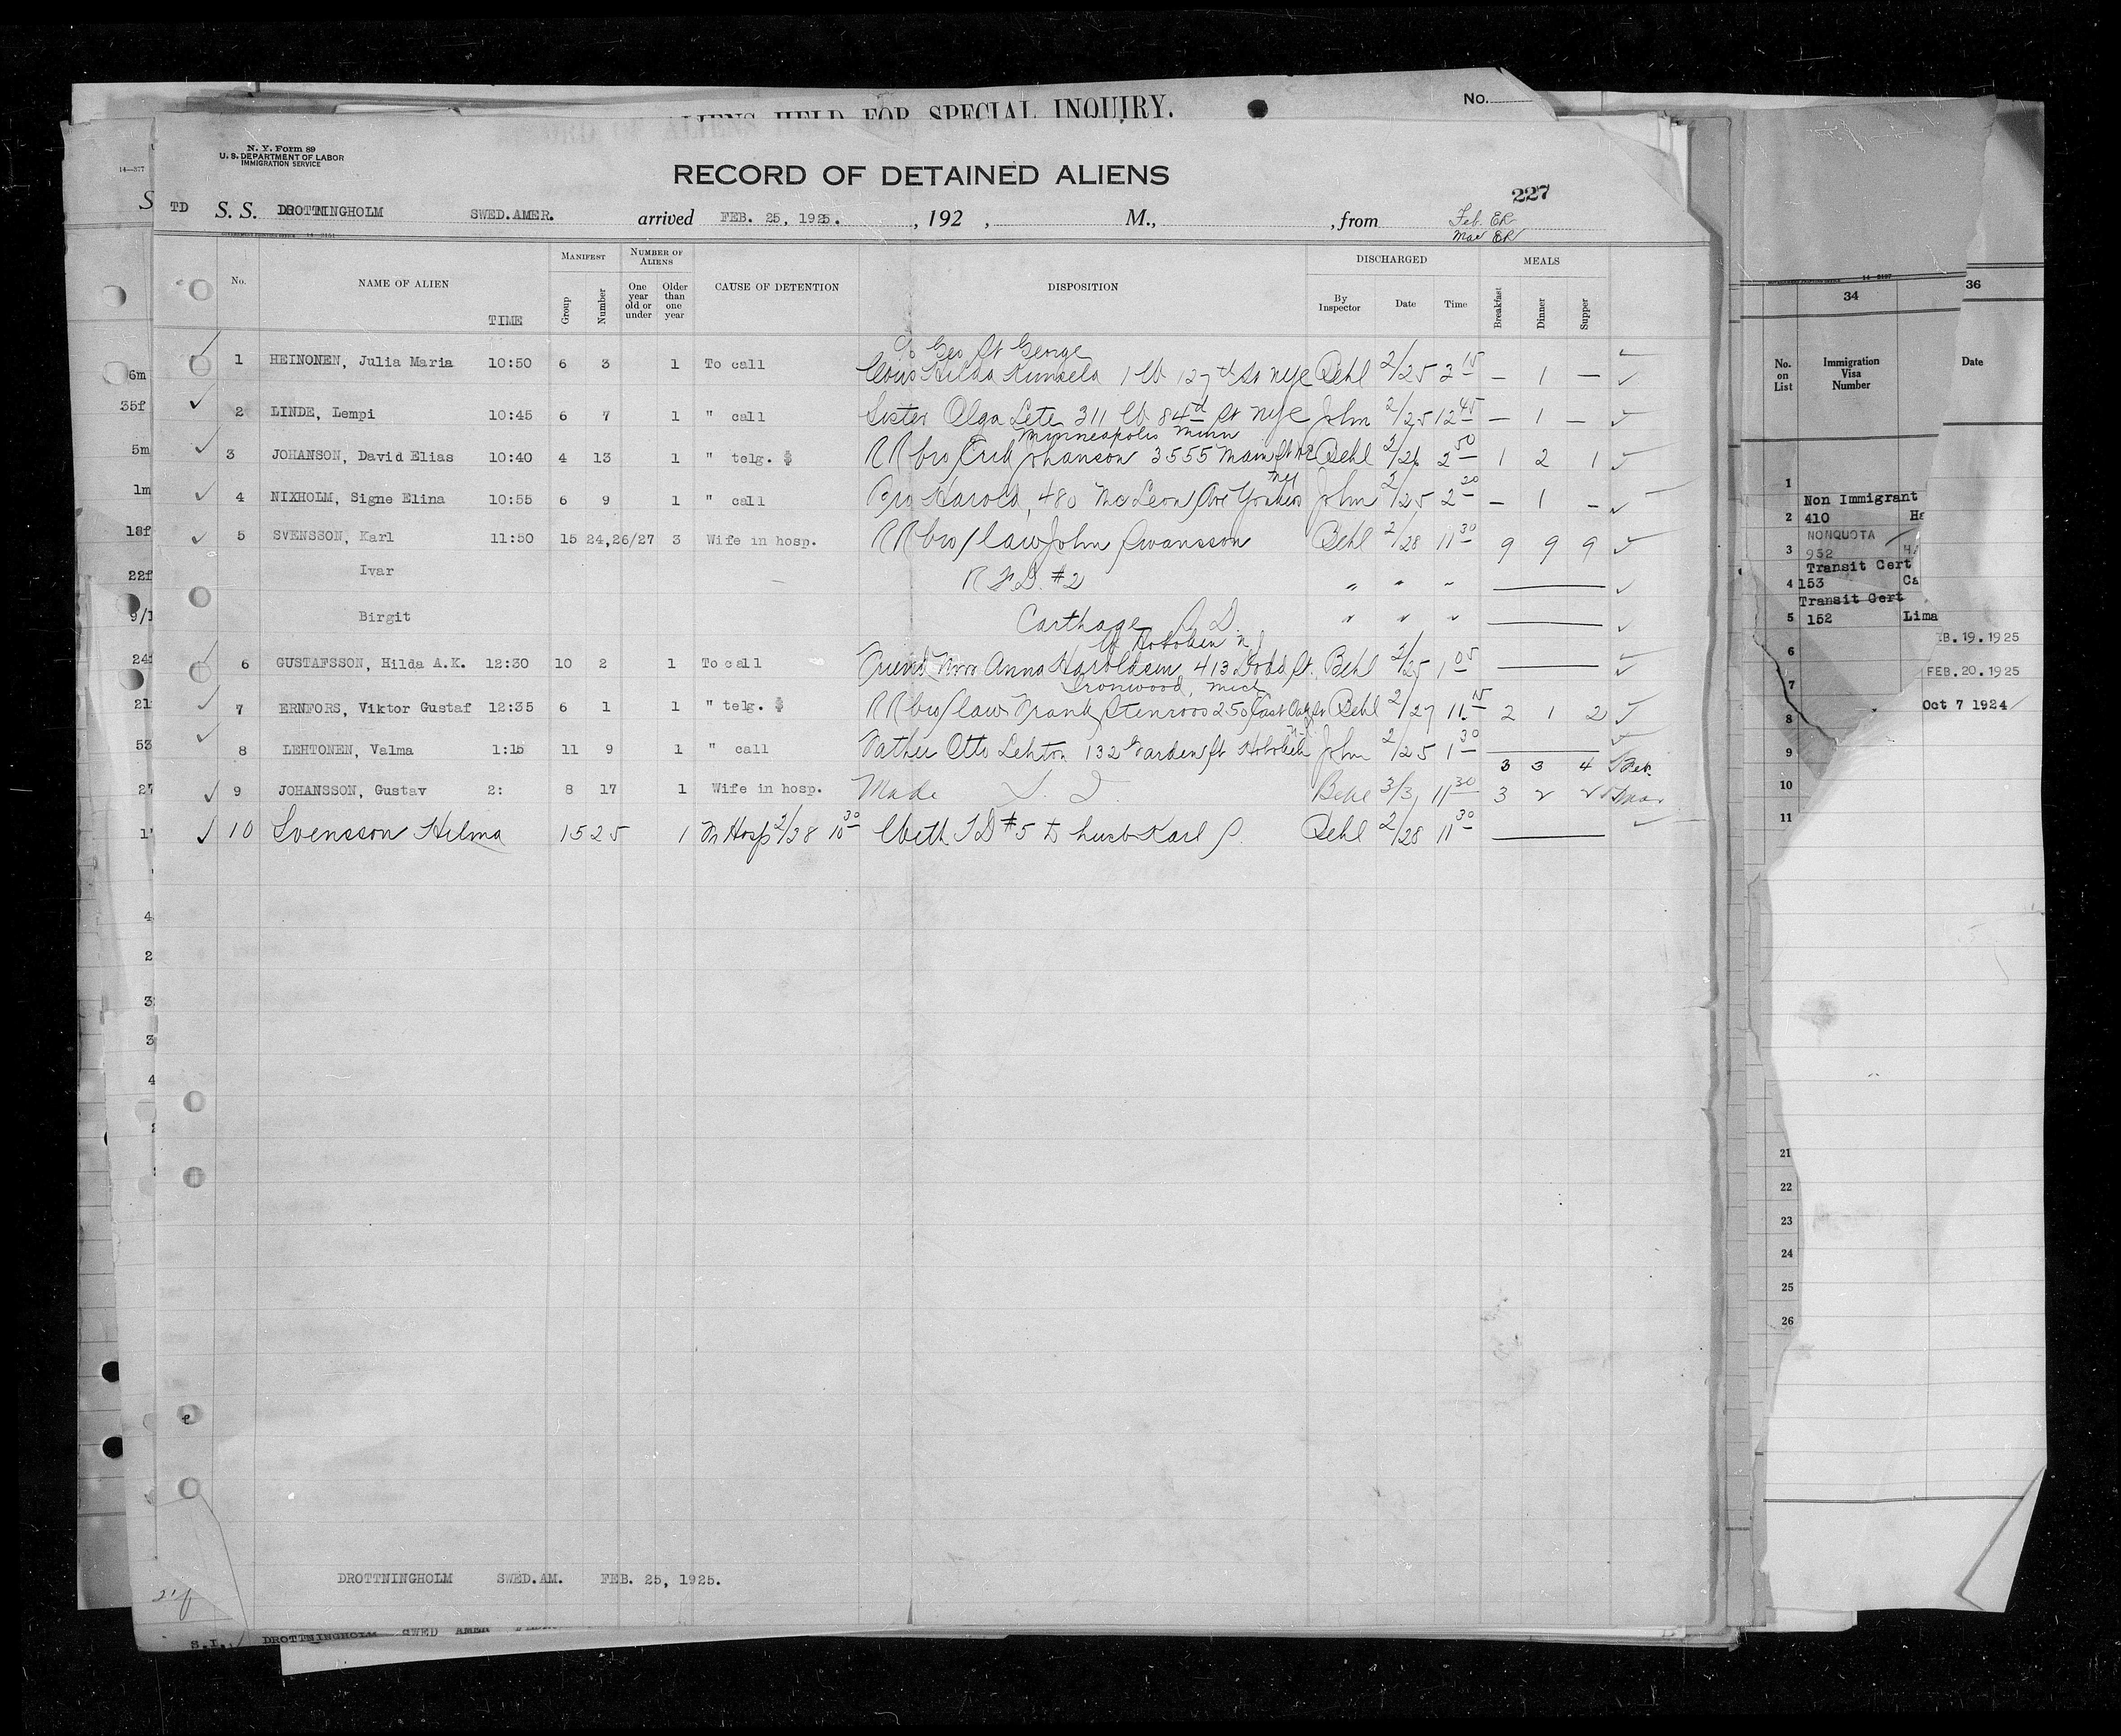 ALIENS HELD FOR SPECIAL INQUIRY.
No.
N. Y. Form 89
U. S. DEPARTMENT OF LABOR
IMMIGRATION SERVICE
14—377
RECORD OF DETAINED ALIENS
227
S
TD S. S. DROTTNINGHOLM SWED.AMER. arrived FEB. 25, 1925. , 192 , M., , from Feb. ER
Mar ER
No. NAME OF ALIEN TIME MANIFEST Group Number NUMBER OF ALIENS One year old or under Older than one year CAUSE OF DETENTION DISPOSITION DISCHARGED By Inspector Date Time MEALS Breakfast Dinner Supper
Geo St George
1 HEINONEN, Julia Maria 10:50 6 3 1 To call Cous Hilda 1 W 127th St NYC Behl 2/25 2 15 — 1 —
2 LINDE, Lempi 10:45 6 7 1 " call Sister Olga Lete 311 W 84 St NYC John 2/25 12 45 — 1 —
Minneapolis Minn
3 JOHANSON, David Elias 10:40 4 13 1 " telg. $ RR bro Erik Johanson 3555 Main St NE Behl 2/26 2 50 1 2 1
NY
4 NIXHOLM, Signe Elina 10:55 6 9 1 " call Bro Harold, 480 McLeon Ave Yonkers John 2/25 2 20 — 1 —
5 SVENSSON, Karl 11:50 15 24,26/27 3 Wife in hosp. RR bro/law John Swansson Behl 2/28 11 30 9 9 9
Ivar R F D. #2 " " "
Birgit Carthage S. D. " " "
W Hoboken N J
6 GUSTAFSSON, Hilda A.K. 12:30 10 2 1 To call Friend Mrs Anna Haroldsen 413 Dodd St. Behl 2/25 1 05
Ironwood, Mich
7 ERNFORS, Viktor Gustaf 12:35 6 1 1 " telg. $ RR bro/law Frank Stenroos 250 East Oak St Behl 2/27 11 15 2 1 2
N.J.
8 LEHTONEN, Valma 1:15 11 9 1 " call Father Otto Lehton 132 Garden St Hoboken John 2/25 1 30
3 3 4 Feb.
9 JOHANSSON, Gustav 2: 8 17 1 Wife in hosp. Made S. I. Behl 3/3 11 30 3 2 2 Mar
10 Svensson Hilma 15 25 1 In Hosp 2/28 10 30 With TD #5 to husb Karl S. Behl 2/28 11 30
DROTTNINGHOLM SWED.AM. FEB. 25, 1925.
S.I. DROTTNINGHOLM SWED AMER
6m
35f
5m
1m
18f
22f
9/1
24
21
53
27
1
4
2
3
3
4
14—3197
34
36
No. on List
Immigration Visa Number
Date
1
Non Immigrant
2 410
NONQUOTA
3 932
Transit Cert
4 153 Ca
Transit Cert
5 152 Lima
6
7
8
9
10
11
21
22
23
24
25
26
EB. 19. 1925
FEB. 20. 1925
Oct 7 1924